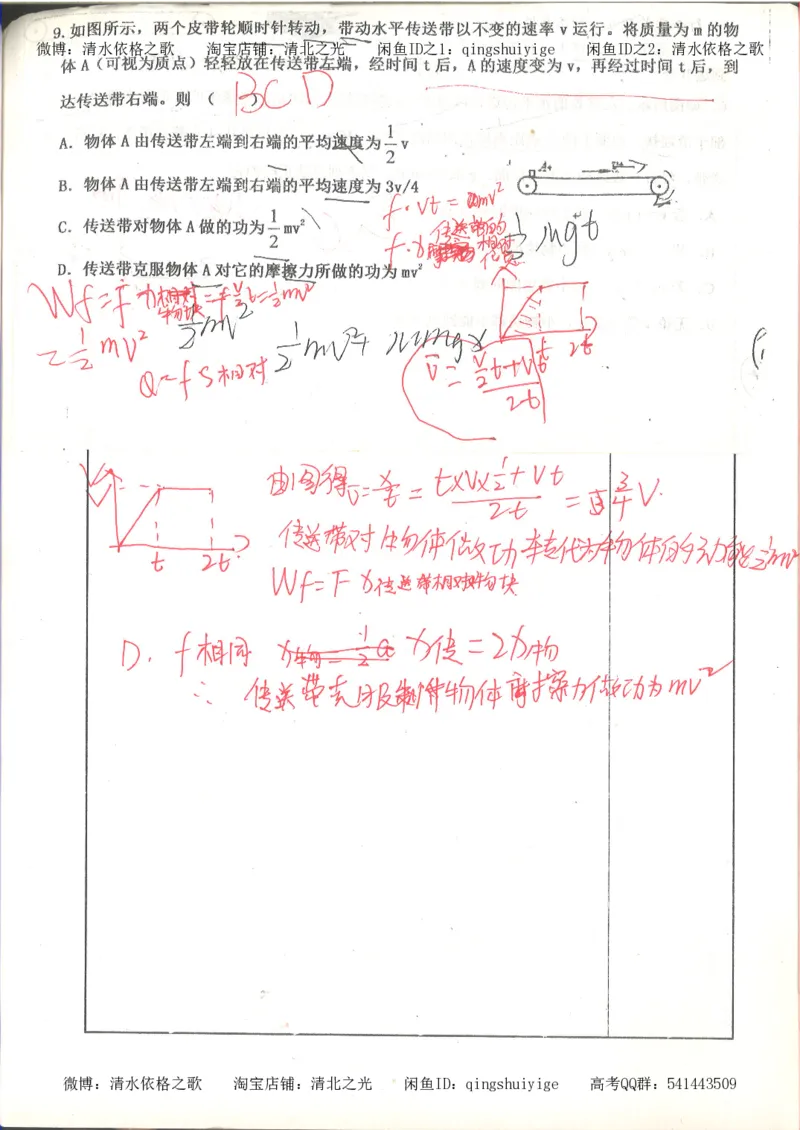 9.如图所示，两个皮带轮顺时针转动，带动水平传送带以不变的速率 v 运行。将质量为 m 的物
微博：清水依格之歌 淘宝店铺：清北之光 闲鱼ID之1：qingshuiyige 闲鱼ID之2：清水依格之歌
体 A（可视为质点）轻轻放在传送带左端，经时间 t 后，A 的速度变为 v，再经过时间 t 后，到
达传送带右端。则 （ BCD ）
A．物体 A 由传送带左端到右端的平均速度为 1/2 v
B．物体 A 由传送带左端到右端的平均速度为 3v/4
C．传送带对物体 A 做的功为 1/2 mv²
D．传送带克服物体 A 对它的摩擦力所做的功为 mv²
f·vt = mv²
传送带的
f·x 相对位移
1/2 μmgt
Wf=F x相对物块=f v/2 t=1/2 mv²
=1/2 mv²
1/2 mv²
1/2 mv²+ μmgx
Q=f S相对
t 2t
v̄ = (v/2 t+vt)/2t
由图得 v̄=x/t = (t×v×1/2+vt)/2t = 3/4 v.
t 2t
传送带对物体做功转化为物体的动能 1/2 mv²
Wf=F x传送带相对物块
D. f相同 x物=1/2 a x传=2x物
∴ 传送带克服物体摩擦力做功为mv²
微博：清水依格之歌 淘宝店铺：清北之光 闲鱼ID：qingshuiyige 高考QQ群：541443509